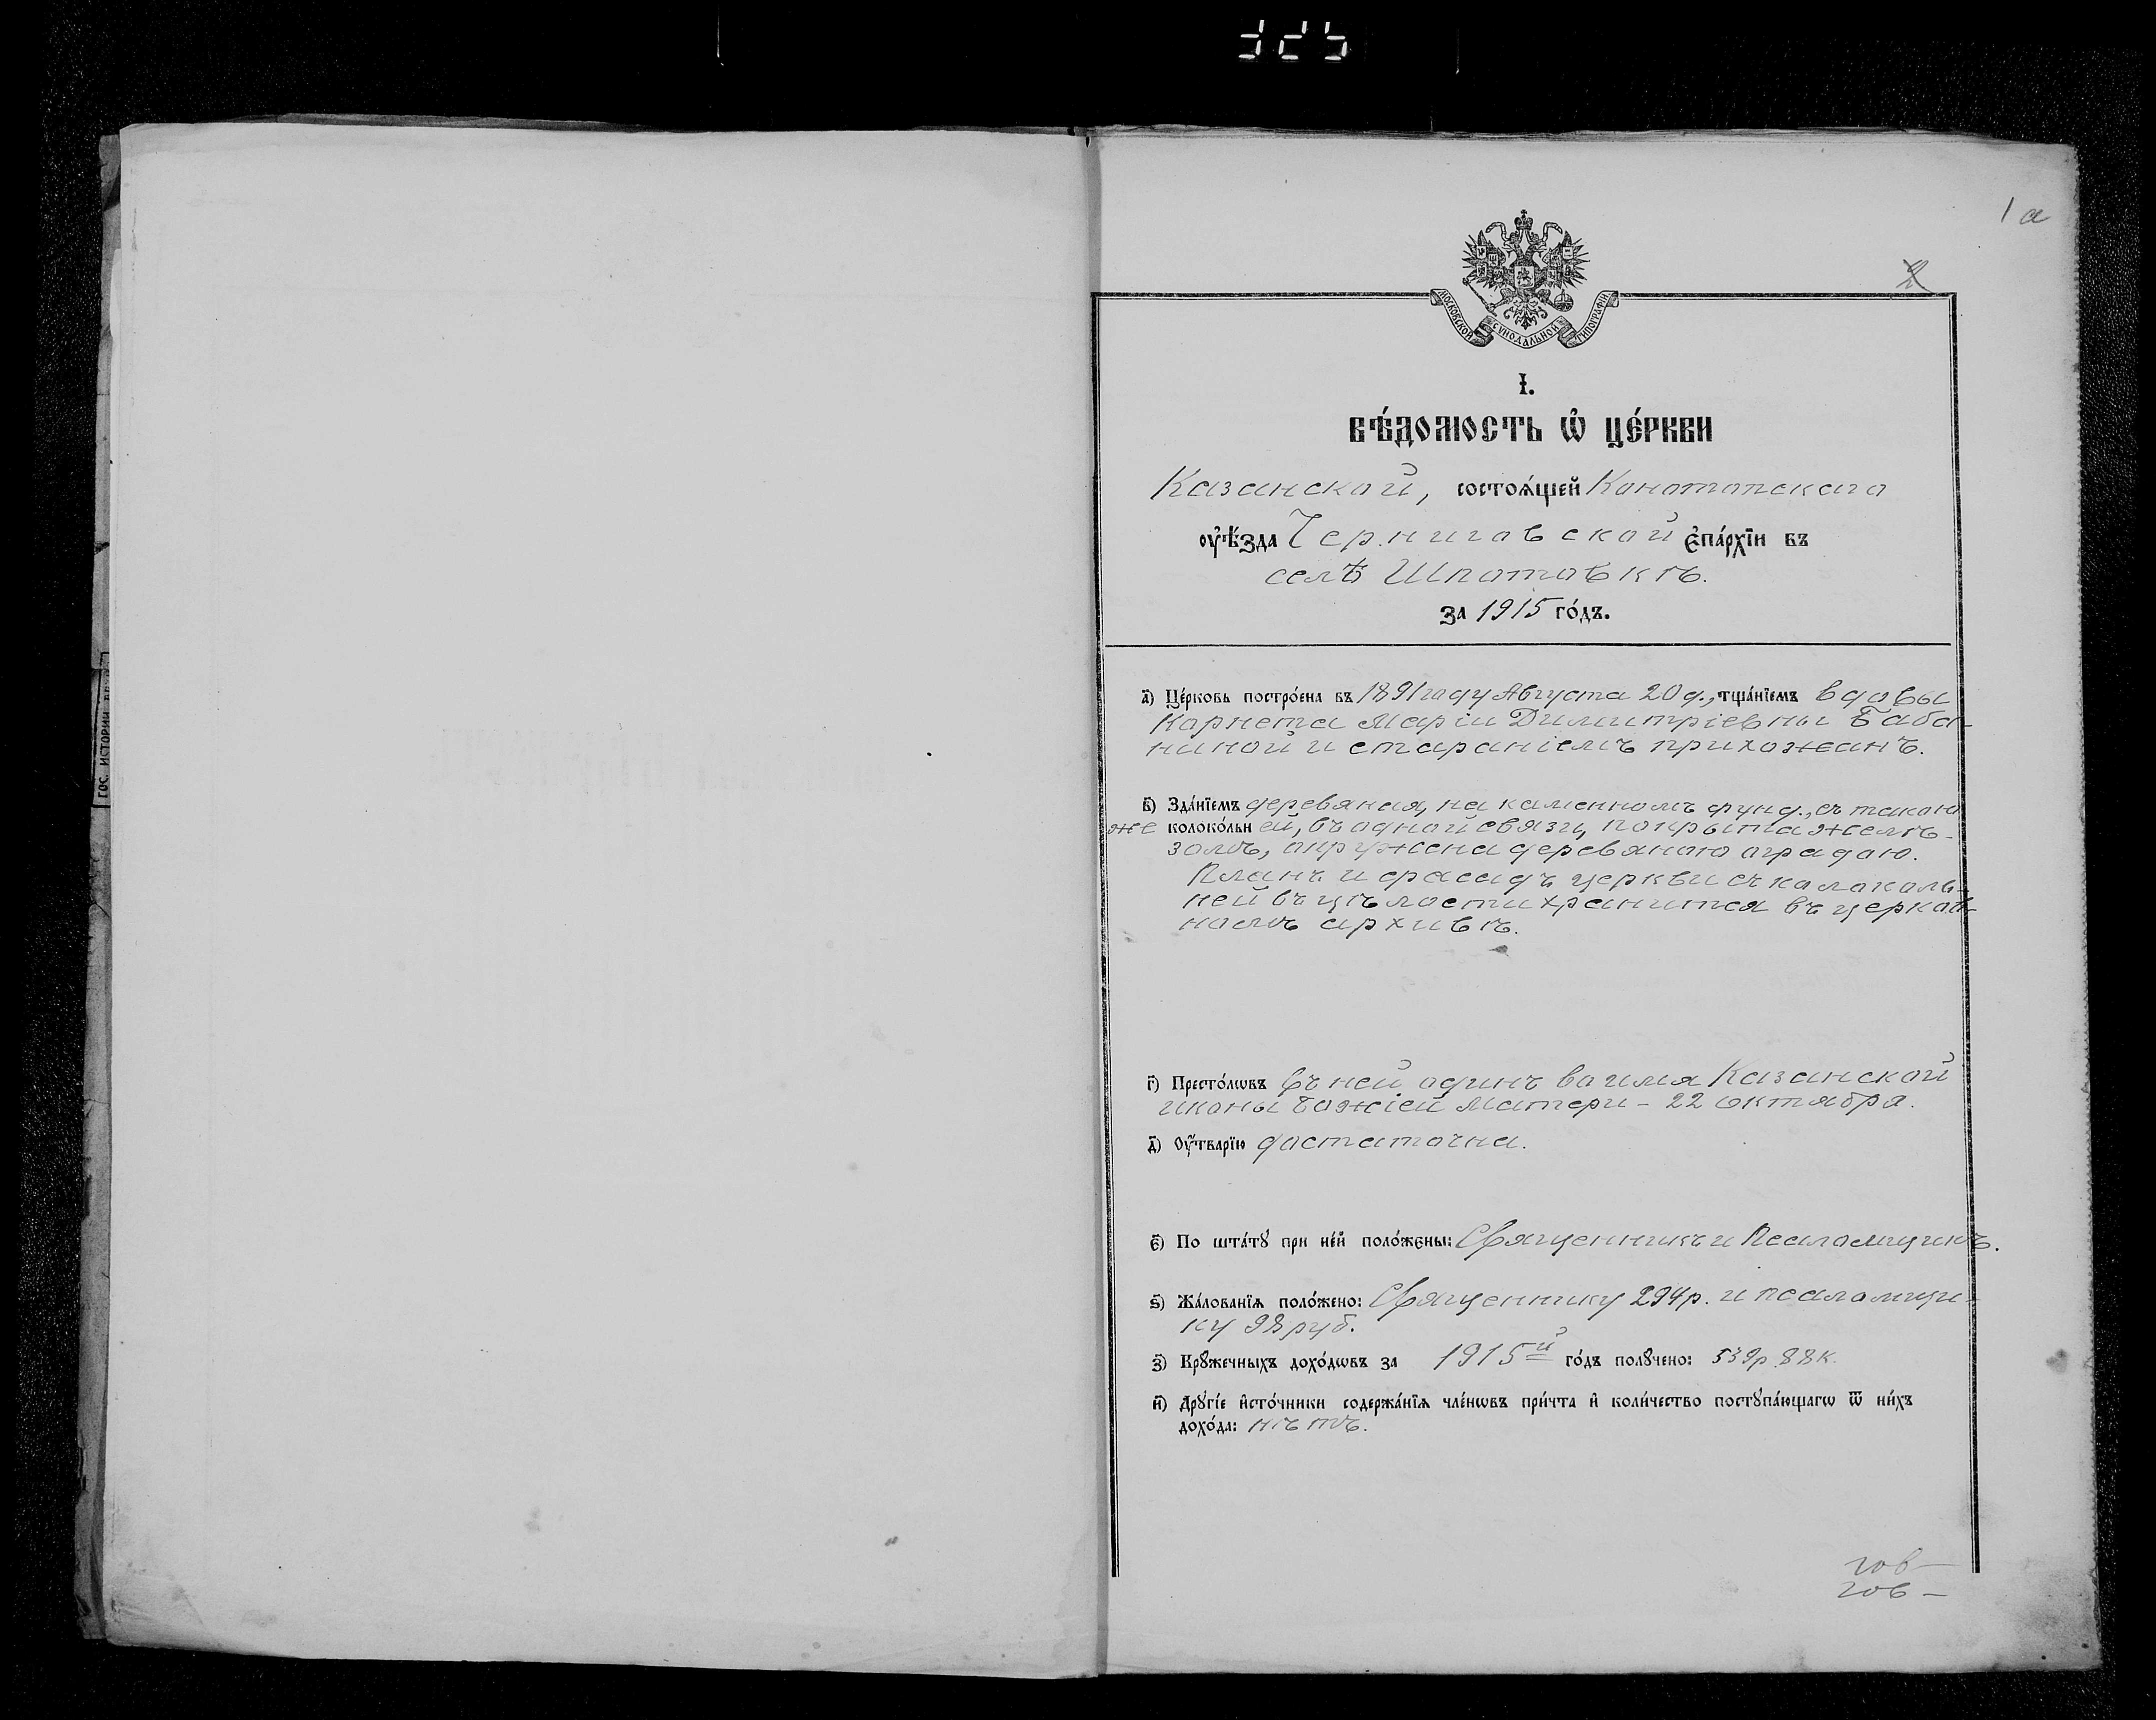 1 а
2
МОСКОВСКОЙ СѴНОДАЛЬНОЙ ТИПОГРАФІИ
I.
ВѢ́ДОМОСТЬ Ѡ҆ ЦЕ́РКВИ
Казанской, состоѧ́щей Конотопскаго
ᲂу҆ѣ́зда Черниговской є҆па́рхїи въ
селѣ Шпотовкѣ.
за 1915 го́дъ.
а҃) Це́рковь постро́ена въ 1891 году Августа 20 д., тща́нїемъ вдовы
Корнета Маріи Димитріевны Баба-
ниной и стараніемъ прихожанъ.
в҃) Зда́нїемъ деревяная, на каменномъ фунд., съ такою
же колоко́льней, въ одной связи, покрыта желѣ-
зомъ, окружена деревяною оградою.
Планъ и фасадъ церкви съ колоколь-
ней въ цѣлости хранится въ церков-
номъ архивѣ.
г҃) Престо́лѡвъ въ ней одинъ во имя Казанской
иконы Божіей Матери - 22 октября.
д҃) Ѹ҆́тварїю достаточна.
є҃) По шта́тꙋ при не́й поло́жены: Священникъ и Псаломщикъ.
ѕ҃) Жа́лованїѧ поло́жено: Священнику 294 р. и псаломщи-
ку 98 руб.
з҃) Крꙋ́жечныхъ дохо́дѡвъ за 1915й го́дъ полꙋ́чено: 539 р. 88 к.
и҃) Дрꙋгі́е и҆сто́чники содержа́нїѧ чле́нѡвъ при́чта и҆ коли́чество постꙋпа́ющагѡ ѿ ни́хъ
дохо́да: нѣтъ.
гов-
гов-